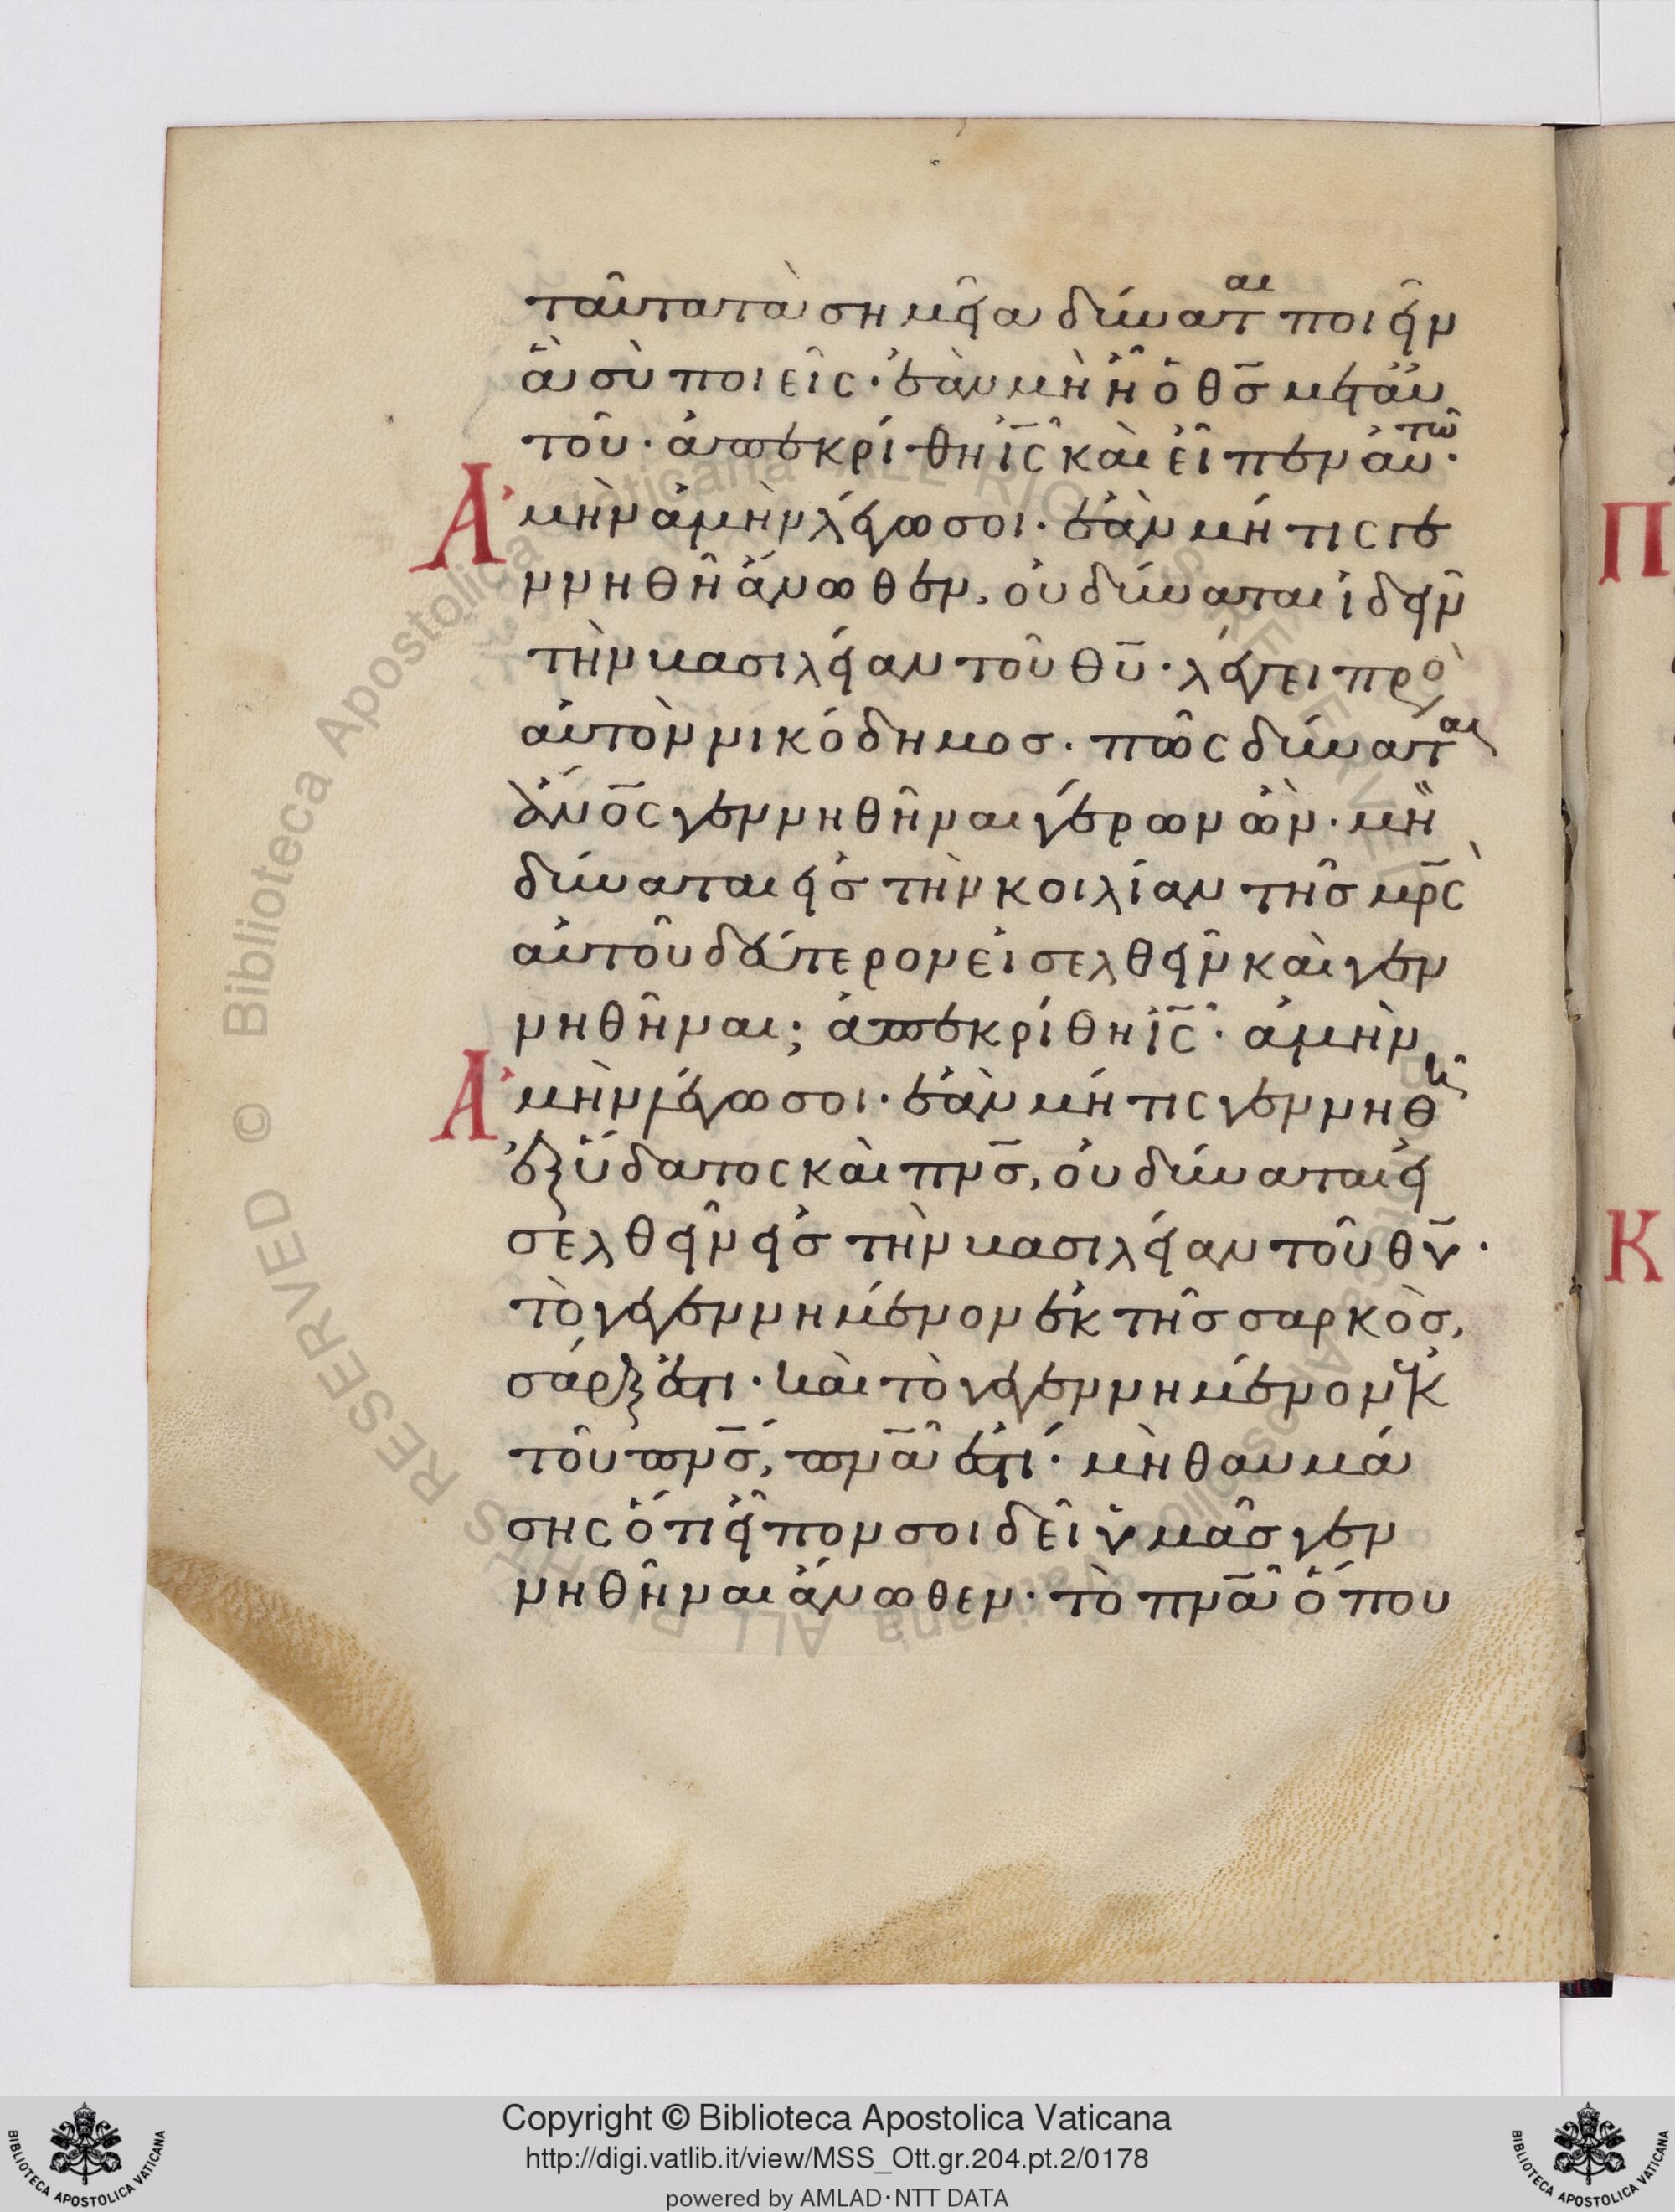 ταῦτα τὰ σημεῖα δύναται ποιεῖν
ἃ σὺ ποιεῖς· ἐὰν μὴ ἦ ὁ θς μετ αὐ
τοῦ· ἀπεκρίθη ἰς καὶ εἶπεν αὐτῶ·
Ἀμὴν ἀμὴν λέγω σοι· ἐὰν μή τις γε
ννηθῆ ἄνωθεν, οὐ δύναται ἰδεῖν
τὴν βασιλείαν τοῦ θυ· λέγει πρὸς
αὐτὸν νικόδημος· πῶς δύναται
ἄνος γεννηθῆναι γέρων ὤν· μὴ
δύναται εἰς τὴν κοιλίαν τῆς μρς
αὐτοῦ δεύτερον εἰσελθεῖν καὶ γεν
νηθῆναι; ἀπεκρίθη ἰς· ἀμὴν
Ἀμὴν λέγω σοι· ἐὰν μή τις γεννηθῆ
ἐξ ὕδατος καὶ πνς, οὐ δύναται εἰ
σελθεῖν εἰς τὴν βασιλείαν τοῦ θυ·
τὸ γεγεννημένον ἐκ τῆς σαρκὸς,
σάρξ ἐστι· καὶ τὸ γεγεννημένον ἐκ
τοῦ πνς, πνα ἐστί· μὴ θαυμά
σης ὅτι εἶπον σοι δεῖ ὑμᾶς γεν
νηθῆναι ἄνωθεν· τὸ πνα ὅπου
Π
Κ
© Biblioteca Apostolica Vaticana ALL RIGHTS RESERVED
© Biblioteca Apostolica Vaticana ALL RIGHTS RESERVED
Copyright © Biblioteca Apostolica Vaticana
http://digi.vatlib.it/view/MSS_Ott.gr.204.pt.2/0178
powered by AMLAD·NTT DATA
BIBLIOTECA APOSTOLICA VATICANA
BIBLIOTECA APOSTOLICA VATICANA